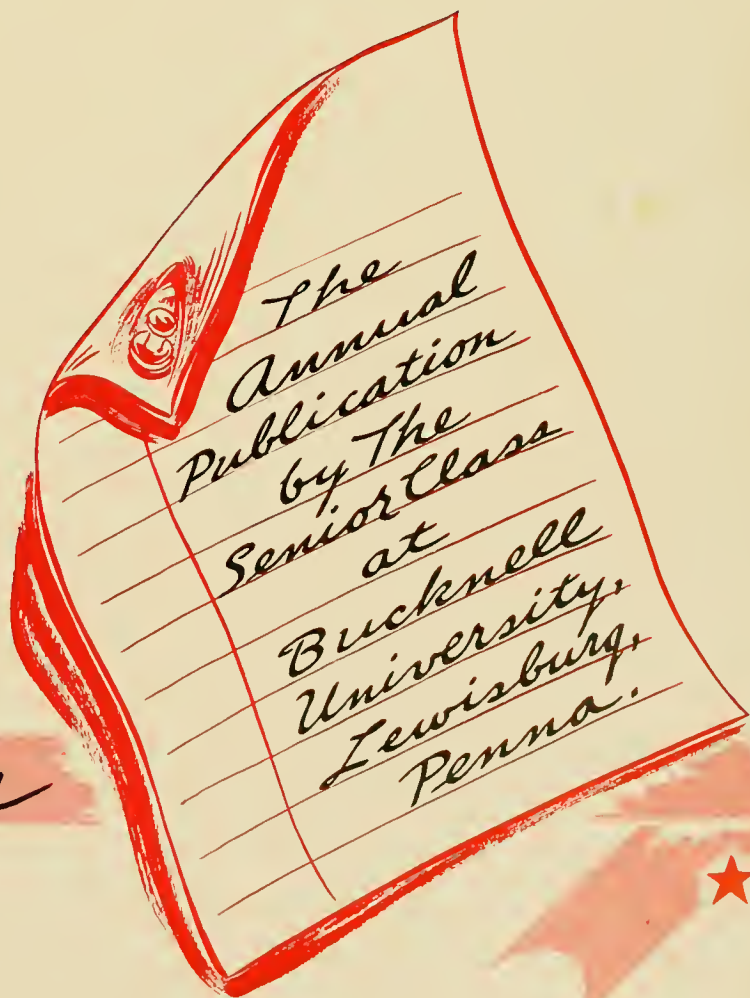 The
Annual
Publication
by The
Senior Class
at
Bucknell
University,
Lewisburg,
Penna.